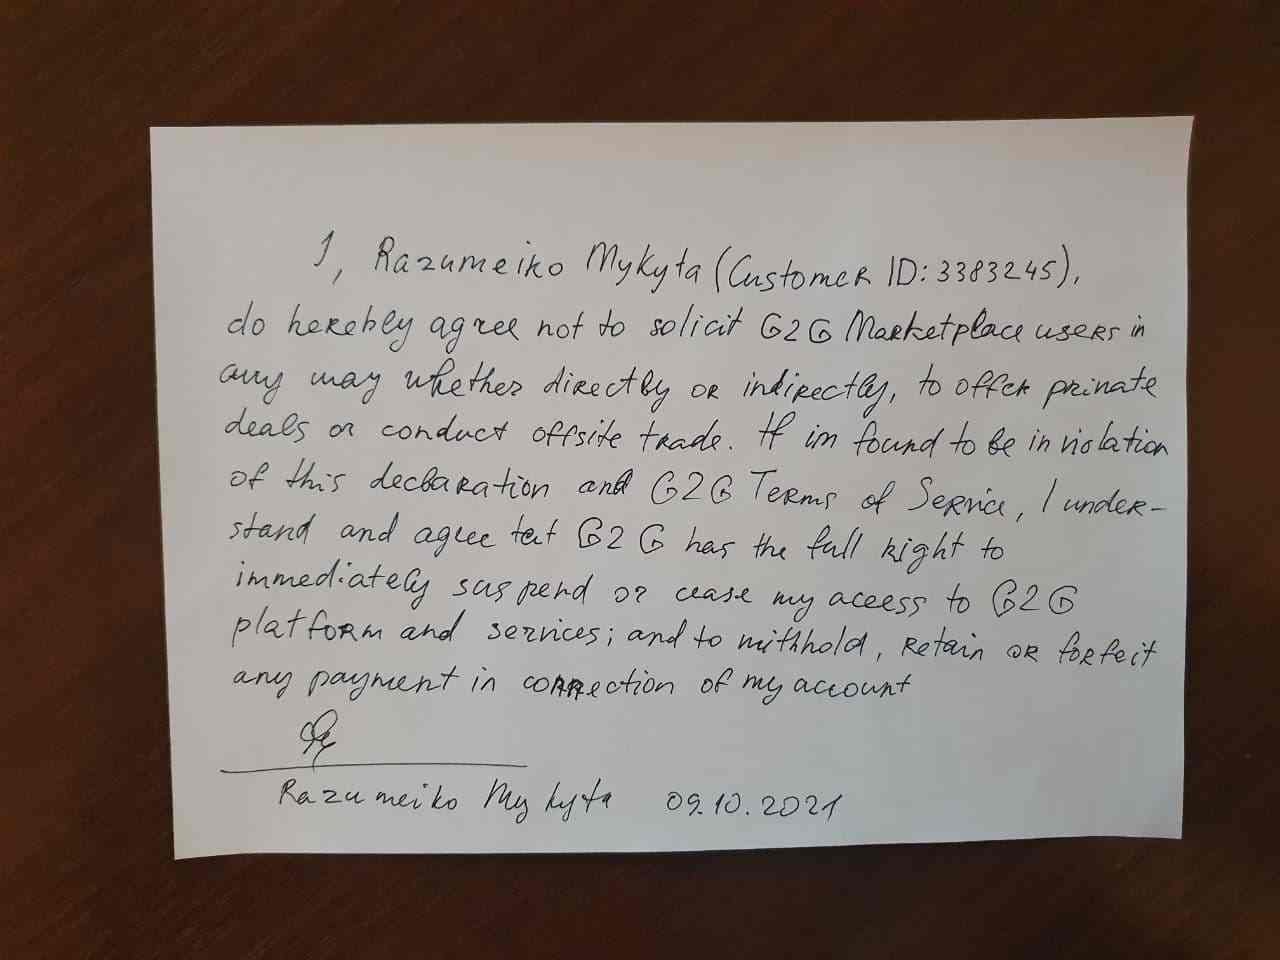 I, Razumeiko Mykyta (Customer ID: 3383245),
do herebly agree not to solicit G2G Marketplace users in
any may whether directly or indirectly, to offer prinate
deals or conduct offsite trade. If im found to be in violation
of this declaration and G2G Terms of Service, I under-
stand and agree tat G2G has the full right to
immediately suspend or cease my aceess to G2G
platform and services; and to mithhold, retain or forfeit
any payment in connection of my account
Razumeiko Mykyta 09.10.2021